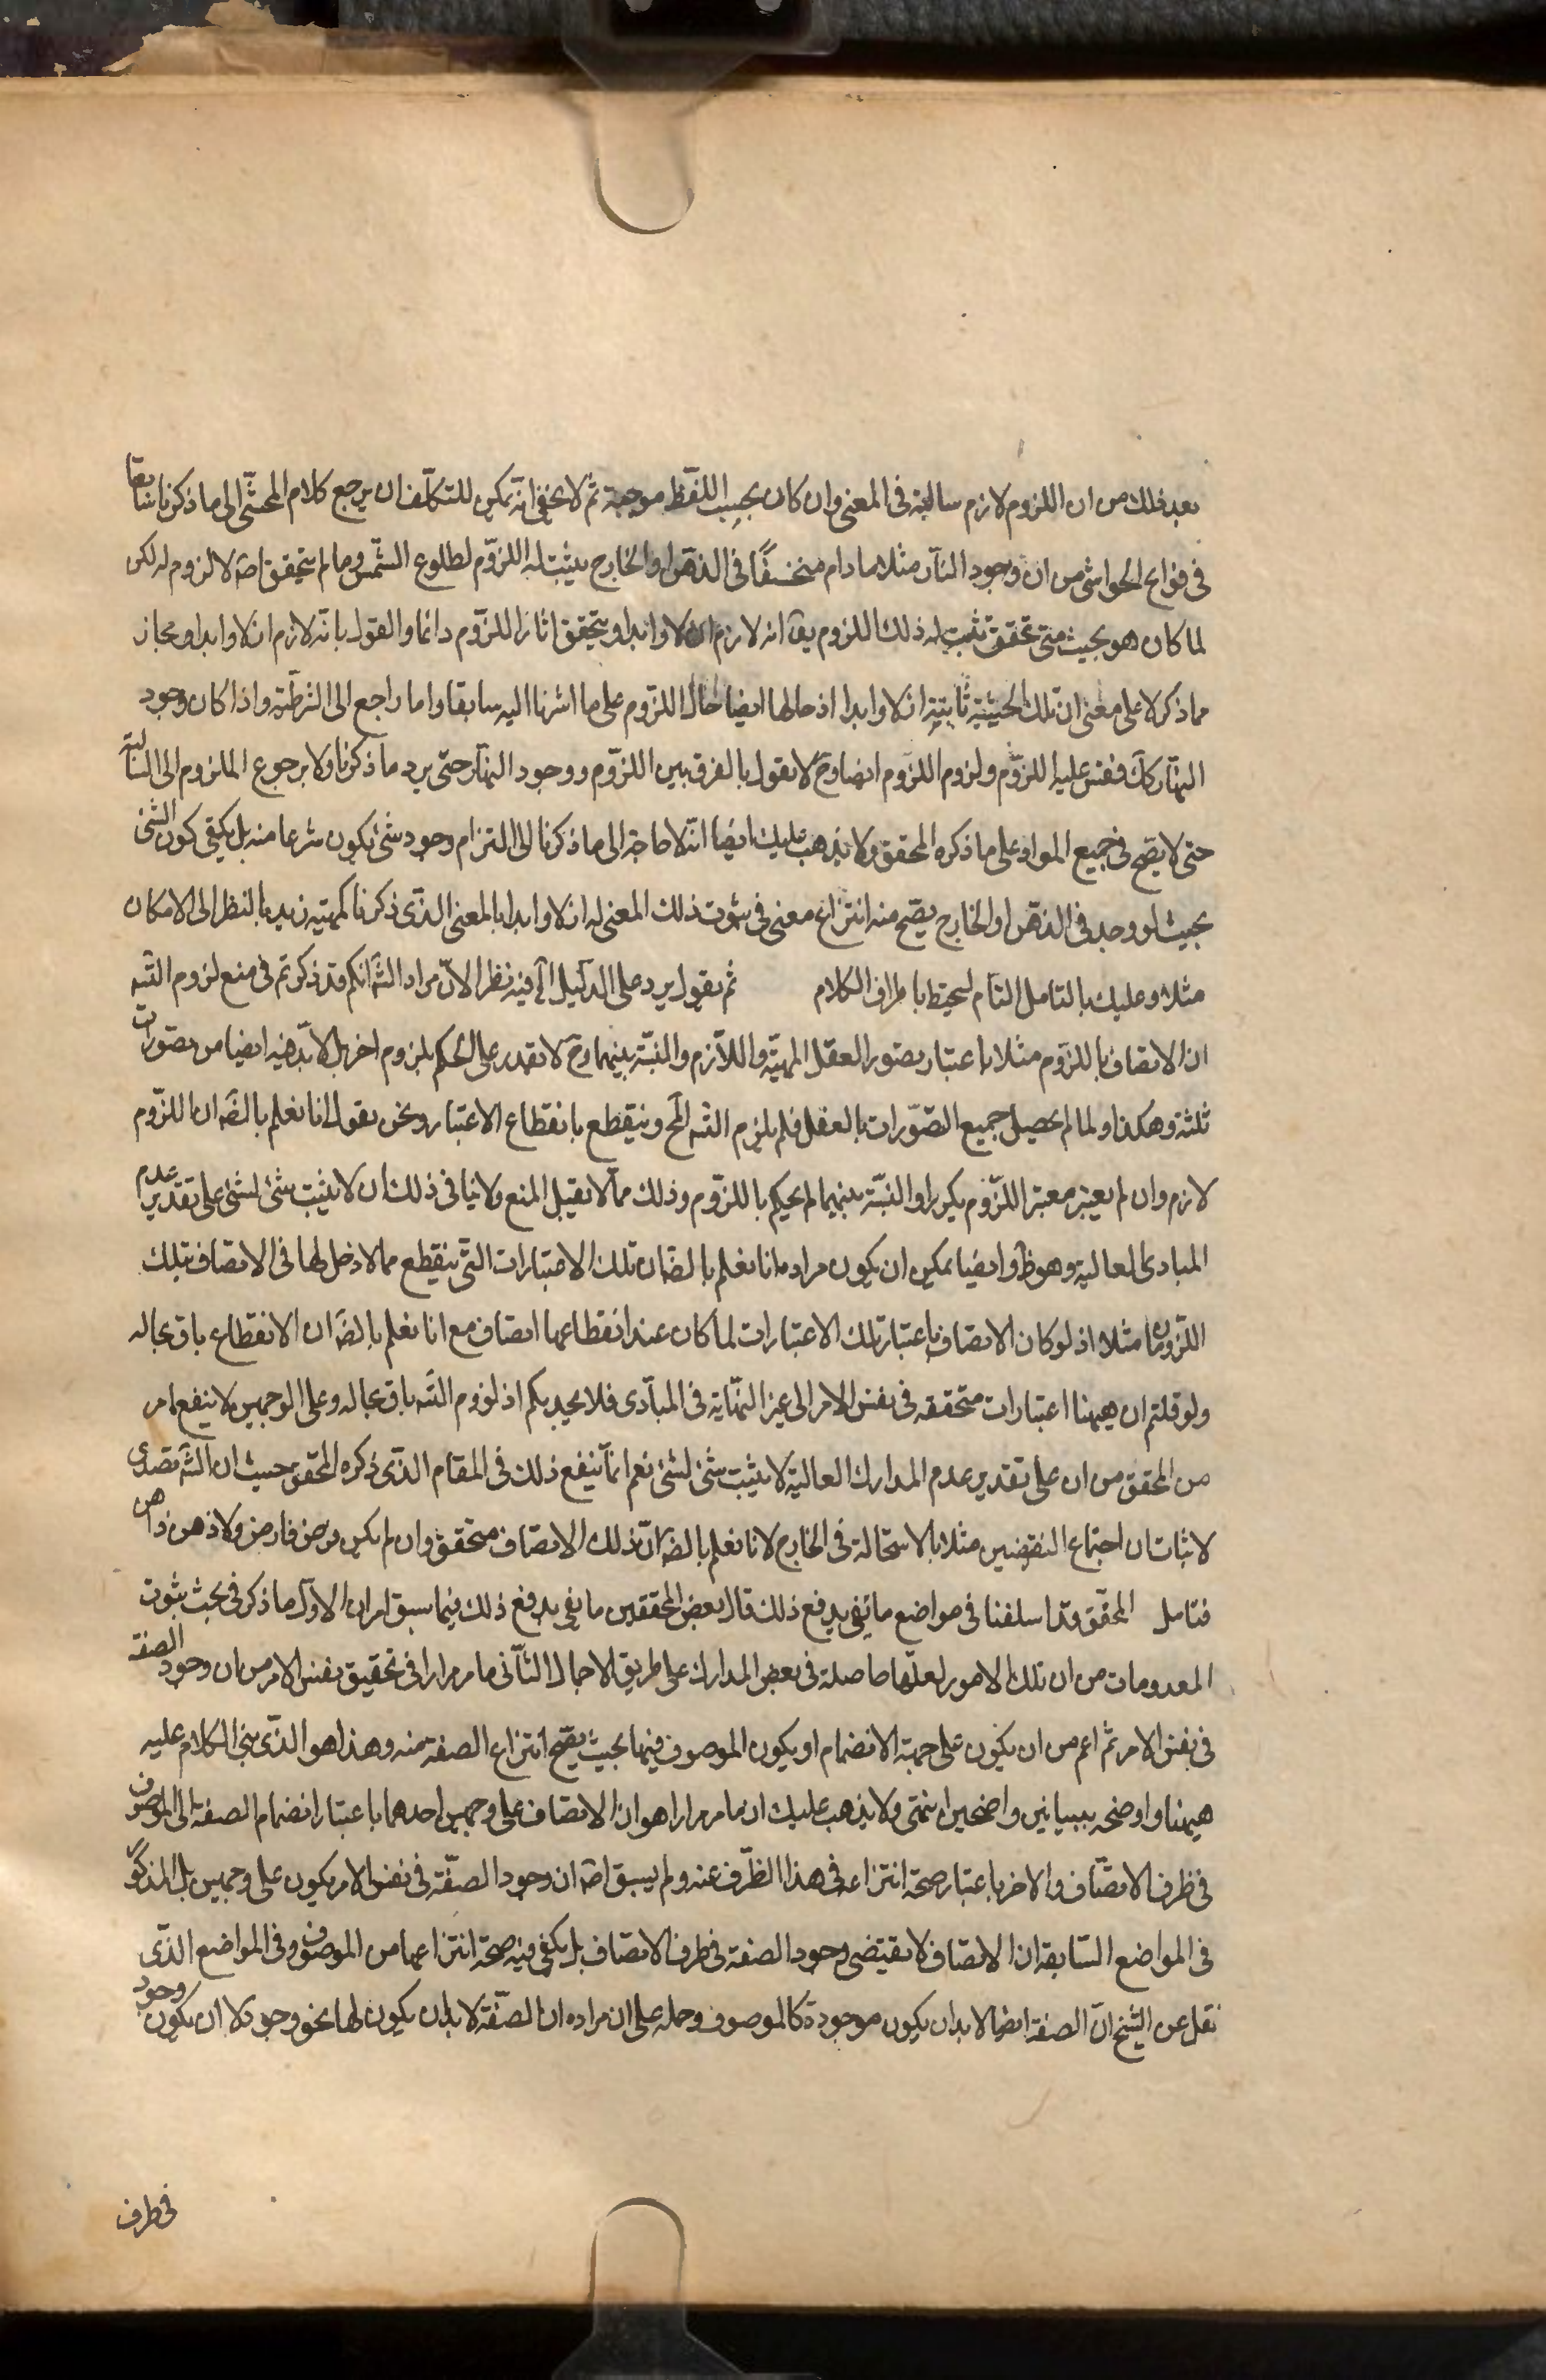 بعد ذلك من ان اللزوم لازم سالبة فى المعنى وان كان بحسب اللفظ موجبة ثم لا يخفى انه يمكن للتكلف ان يرجع كلام المحشى الى ما ذكرنا سابقا
فى فواتح الحواشى من ان وجود النهار مثلا ما دام متحققا فى الذهن او الخارج يثبت له اللزوم لطلوع الشمس وما لم يتحقق اصلا لا لزوم له لكن
لما كان هو بحيث متى تحقق يثبت له ذلك اللزوم يق انه لازم ازلا وابدا ويتحقق اثار اللزوم دائما والقول بانه لازم ازلا وابدا مجاز
مما ذكر لا على معنى ان تلك الحيثية ثابتة ازلا وابدا اذ حالها ايضا حال اللزوم على ما اشرنا اليه سابقا واما راجع الى الشرطية واذا كان وجود
النهار كك فقس عليه اللزوم ولزوم اللزوم ايضا وح لا نقول بالفرق بين اللزوم ووجود النهار حتى يرد ما ذكرنا ولا برجوع الملزوم الى السالبة
حتى لا يصح فى جميع المواد على ما ذكره المحقق ولا يذهب عليك ايضا انه لا حاجة الى ما ذكرنا الى التزام وجود شئ يكون منتزعا منه بل يكفى كون الشئ
بحيث لو وجد فى الذهن او الخارج يصح منه انتزاع معنى فى ثبوت ذلك المعنى له ازلا وابدا بالمعنى الذى ذكرنا كمهية زيد بالنظر الى الامكان
مثلا وعليك بالتامل التام لتحيط باطراف الكلام ثم نقول يرد على الدليل الآ فيه نظر الان مراد الشه انكم قد ذكرتم فى منع لزوم التسه
ان الاتصاف باللزوم مثلا باعتبار تصور العقل المهية واللازم والنسبة بينهما وح لا نقدر على الحكم بلزوم اخر بل لا بد فيه ايضا من تصورات
ثلثة وهكذا ولما لم يحصل جميع التصورات بالفعل فلم يلزم التسه المح وينقطع بانقطاع الاعتبار ونحن نقول انا نعلم بالضه ان اللزوم
لازم وان لم يعتبر معتبر اللزوم والنسبة بينهما لم يحكم باللزوم وذلك مما لا يقبل المنع ولا ينافى ذلك ان لا يثبت شئ لشئ على تقدير عدم
المبادى العالية وهو ظ وايضا يمكن ان يكون مراده انا نعلم بالضه ان تلك الاعتبارات التى ينقطع مما لا دخل لها فى الاتصاف بتلك
اللزومات مثلا اذ لو كان الاتصاف باعتبار تلك الاعتبارات لما كان عند انقطاعها اتصاف مع انا نعلم بالضه ان الانقطاع باق بحاله
ولو قلتم ان هيهنا اعتبارات متحققة فى نفس الامر الى غير النهاية فى المبادى فلا يجديكم اذ لزوم التسه باق بحاله وعلى الوجهين لا ينفع ما مر
من المحقق من ان على تقدير عدم المدارك العالية لا يثبت شئ لشئ نعم انما ينفع ذلك فى المقام الذى ذكره المحقق حيث ان الشه تصدى
لاثبات ان اجتماع النقيضين مثلا بالاستحالة فى الخارج لانا نعلم بالضه ان ذلك الاتصاف متحقق وان لم يكن فرض فارض ولا ذهن ذاهن
فتامل المحقق قد اسلفنا فى مواضع ما يفى بدفع ذلك قال بعض المحققين ما يفى بدفع ذلك فيما سبق امران الاول ما ذكر فى بحث ثبوت
المعدومات من ان تلك الامور لعلها حاصلة فى بعض المدارك على طريق الاجمال الثانى ما مر مرارا فى تحقيق نفس الامر من ان وجود الصفة
فى نفس الامر ثم اعم من ان يكون على جهة الانضمام او يكون الموصوف فيها بحيث يصح انتزاع الصفة منه وهذا هو الذى بنى الكلام عليه
هيهنا واوضحه ببيانين واضحين انتهى ولا يذهب عليك ان ما مر مرارا هو ان الاتصاف على وجهين احدهما باعتبار انضمام الصفة الى الموصوف
فى ظرف الاتصاف والاخر باعتبار صحة انتزاعه فى هذا الظرف عنه ولم يسبق اصه ان وجود الصفة فى نفس الامر يكون على وجهين بل المذكور
فى المواضع السابقة ان الاتصاف لا يقتضى وجود الصفة فى ظرف الاتصاف بل يكفى فيه صحة انتزاعها من الموصوف وفى المواضع الذى
نقل عن الشيخ ان الصفة ايضا لا بد ان يكون موجودة كالموصوف وحمله على ان مراده ان الصفة لا بد ان يكون لها نحو وجود لا ان يكون وجود
فى ظرف